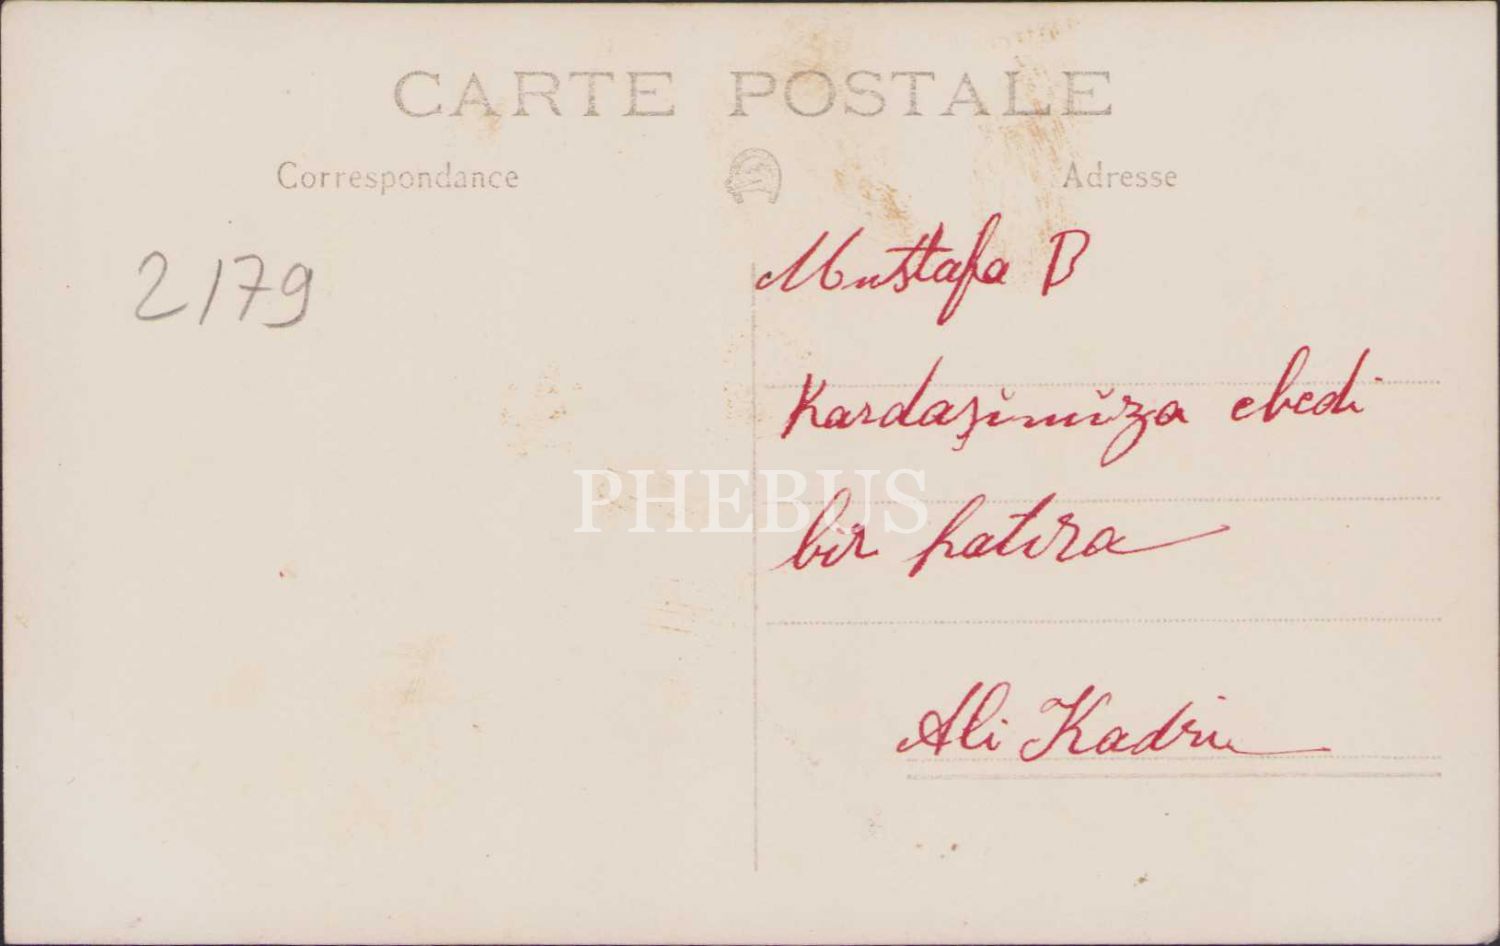 CARTE POSTALE
Correspondance
Adresse
2179
Mustafa B
Kardaşımıza ebedi
PHEBUS
bir hatıra
Ali Kadri